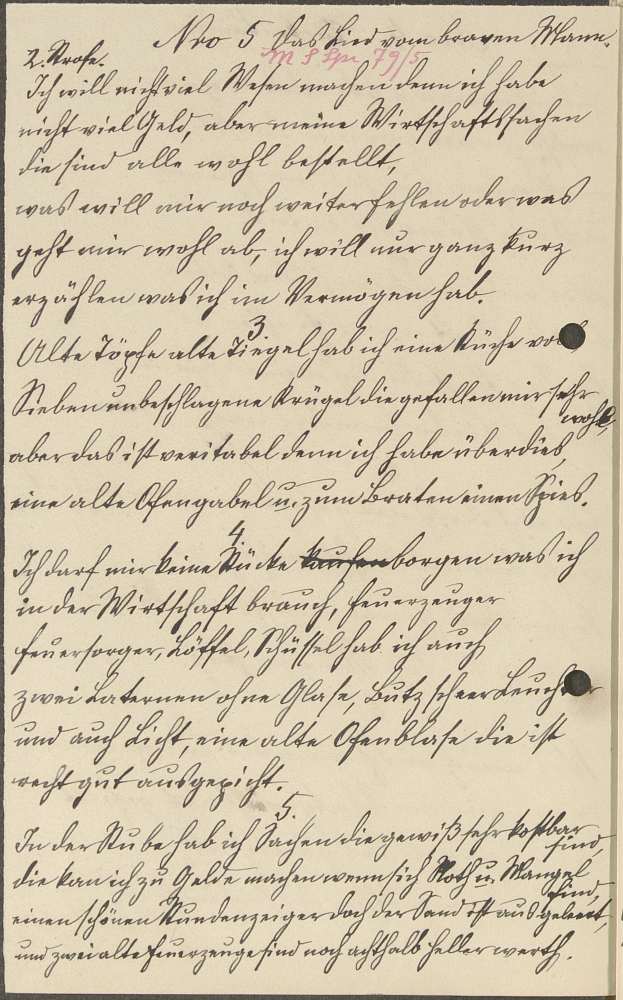 Nro 5 Das Lied vom braven Mann.
2. Strofe.
Ich will nicht viel Wesen machen denn ich habe
nicht viel Geld, aber meine Wirtschaftssachen
die sind alle wohl bestellt,
was will mir noch weiter fehlen oder was
geht mir wohl ab, ich will nur ganz kurz
erzählen was ich im Vermögen hab.
3.
Alte Töpfe alte Tiegel hab ich eine Küche voll
Sieben unbeschlagene Krügel die gefallen mir sehr
wohl,
aber das ist veritabel denn ich habe überdies,
eine alte Ofengabel u. zum Braten einen Spies.
4.
Ich darf mir keine Stücke kaufen borgen was ich
in der Wirtschaft brauch, Feuerzeuger
Feuersorger, Löffel, Schüssel hab ich auch
zwei Laternen ohne Glase, Butzscheer Leuchter
und auch Licht, eine alte Ofenblase die ist
recht gut ausgepicht.
5.
In der Stube hab ich Sachen die gewiß sehr kostbar
sind,
die kan ich zu Gelde machen wenn sich Noth u. Mangel
find,
einen schönen Stundenzeiger doch der Sand ist aus geleert,
und zwei alte Feuerzeuge sind noch achthalb Heller werth.